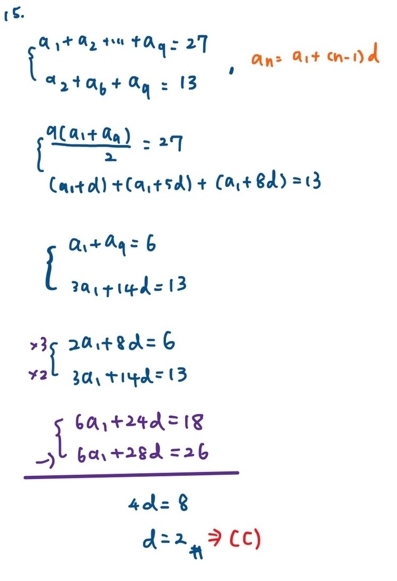 15.
a₁+a₂+...+a₉=27
a₂+a₆+a₉=13 , an=a₁+(n-1)d
9(a₁+a₉)/2=27
(a₁+d)+(a₁+5d)+(a₁+8d)=13
a₁+a₉=6
3a₁+14d=13
×3 2a₁+8d=6
×2 3a₁+14d=13
6a₁+24d=18
-) 6a₁+28d=26
4d=8
d=2 # ⇒ (C)